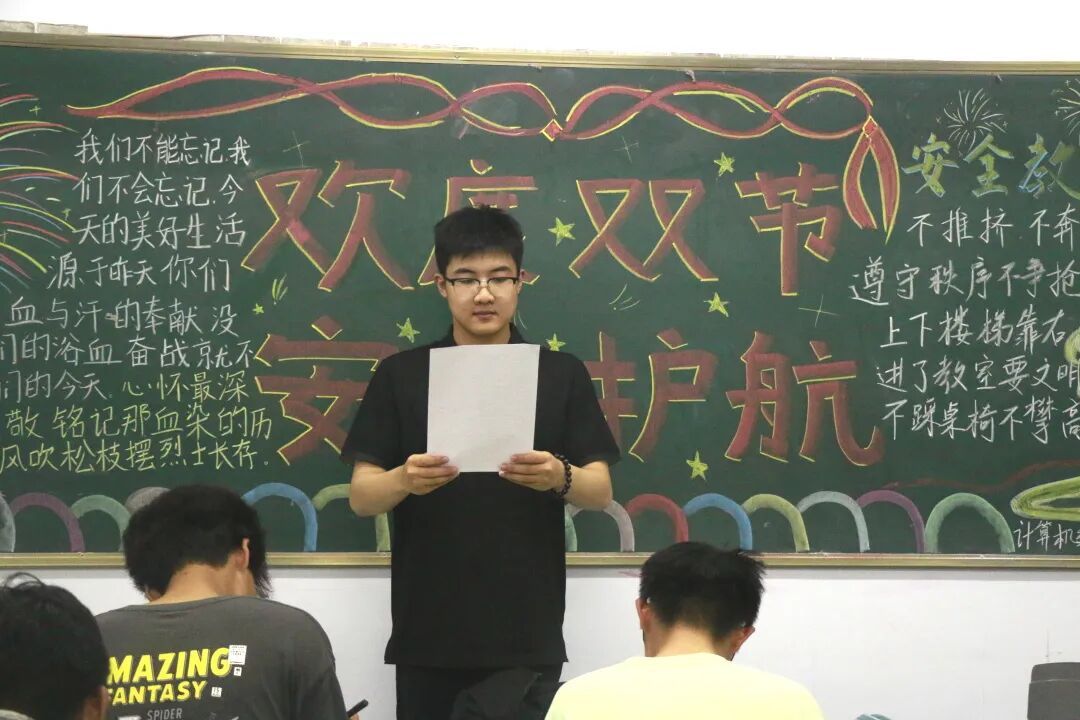 我们不能忘记.我
们不会忘记.今
天的美好生活
源于昨天你们
血与汗的奉献没
们的浴血奋战就不
们的今天.心怀最深
敬铭记那血染的历
风吹松枝摆烈士长存.
欢度双节
安 护航
安全教
不推挤.不奔
遵守秩序不争抢
上下楼梯靠右
进了教室要文明
不踩桌椅不攀高
计算机
MAZING
FANTASY
SPIDER